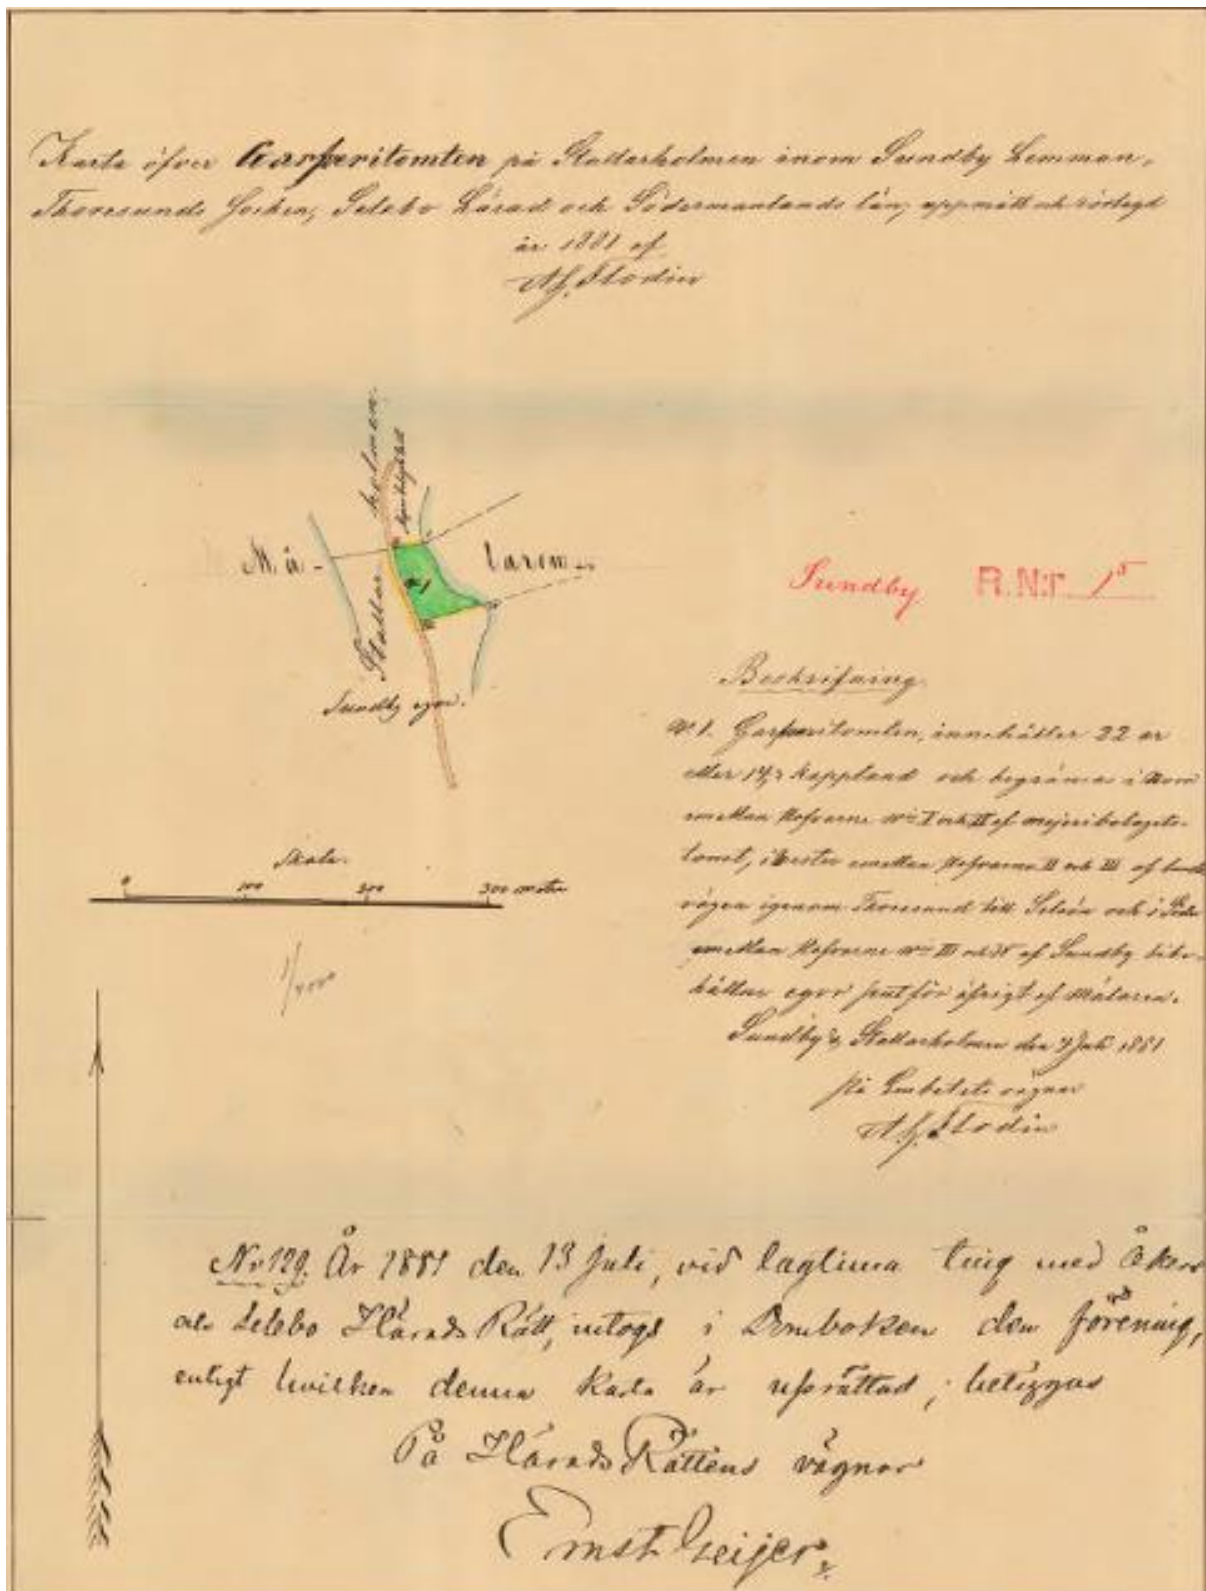 Karta öfver Garfveritomten på Stallarholmen inom Sundby hemman,
Thoresunds Socken, Selebo Härad och Södermanlands län; uppmätt och rörlagd
år 1881 af
Flodin
Stallar holmen.
Mä-
laren.
Nº 1
Sundby egor.
Sundby R.N:r 1⁵
Beskrifning.
Nº 1. Garfveritomten, innehåller 22 ar
eller 14,3 kappland och begränsas i Norr
emellan Rofvarne Nis I och II af mejeribolagets
tomt, i Vester emellan Rofvarne II och III af
vägen igenom Thoresund till Selaön och i Söder
emellan Rofvarne Nis III och IV af Sundby bibe-
hållna egor samt för öfrigt af Mälaren.
Sundby & Stallarholmen den 7 Juli 1881
På Embetets vägnar
Flodin
Skala.
0 100 200 300 meter
1/4000
Nr 129. År 1881 den 13 Juli, vid lagtima ting med Åkers
och Selebo Härads Rätt, intogs i Domboken den förening,
enligt hvilken denna karta är upprättad; betygas
På Härads Rättens vägnar
Ernst Geijer.